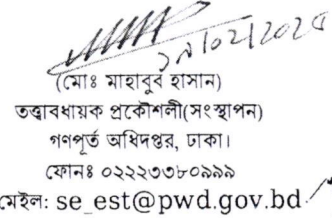 (মোঃ মাহাবুব হাসান)
তত্ত্বাবধায়ক প্রকৌশলী(সংস্থাপন)
গণপূর্ত অধিদপ্তর, ঢাকা।
ফোনঃ ০২২২৩৩৮০৯৯৯
মেইল: se_est@pwd.gov.bd